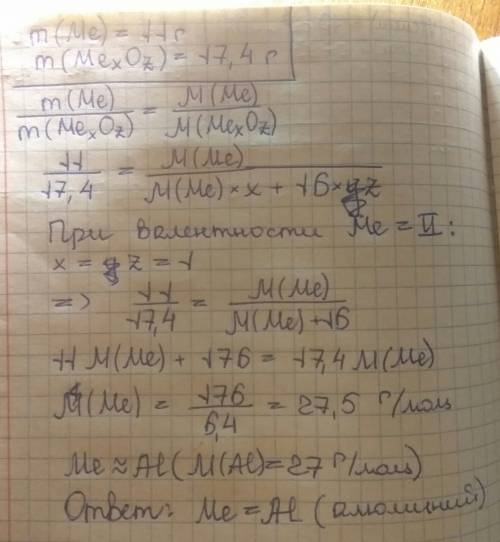 m(Me) = 11 г
m(MexOz) = 17,4 г
m(Me) / m(MexOz) = M(Me) / M(MexOz)
11 / 17,4 = M(Me) / M(Me) × x + 16 × z
При валентности Me = II:
x = z = 1
=> 11 / 17,4 = M(Me) / M(Me) + 16
11 M(Me) + 176 = 17,4 M(Me)
M(Me) = 176 / 6,4 = 27,5 г/моль
Me ≈ Al (M(Al) = 27 г/моль)
Ответ: Me = Al (алюминий)